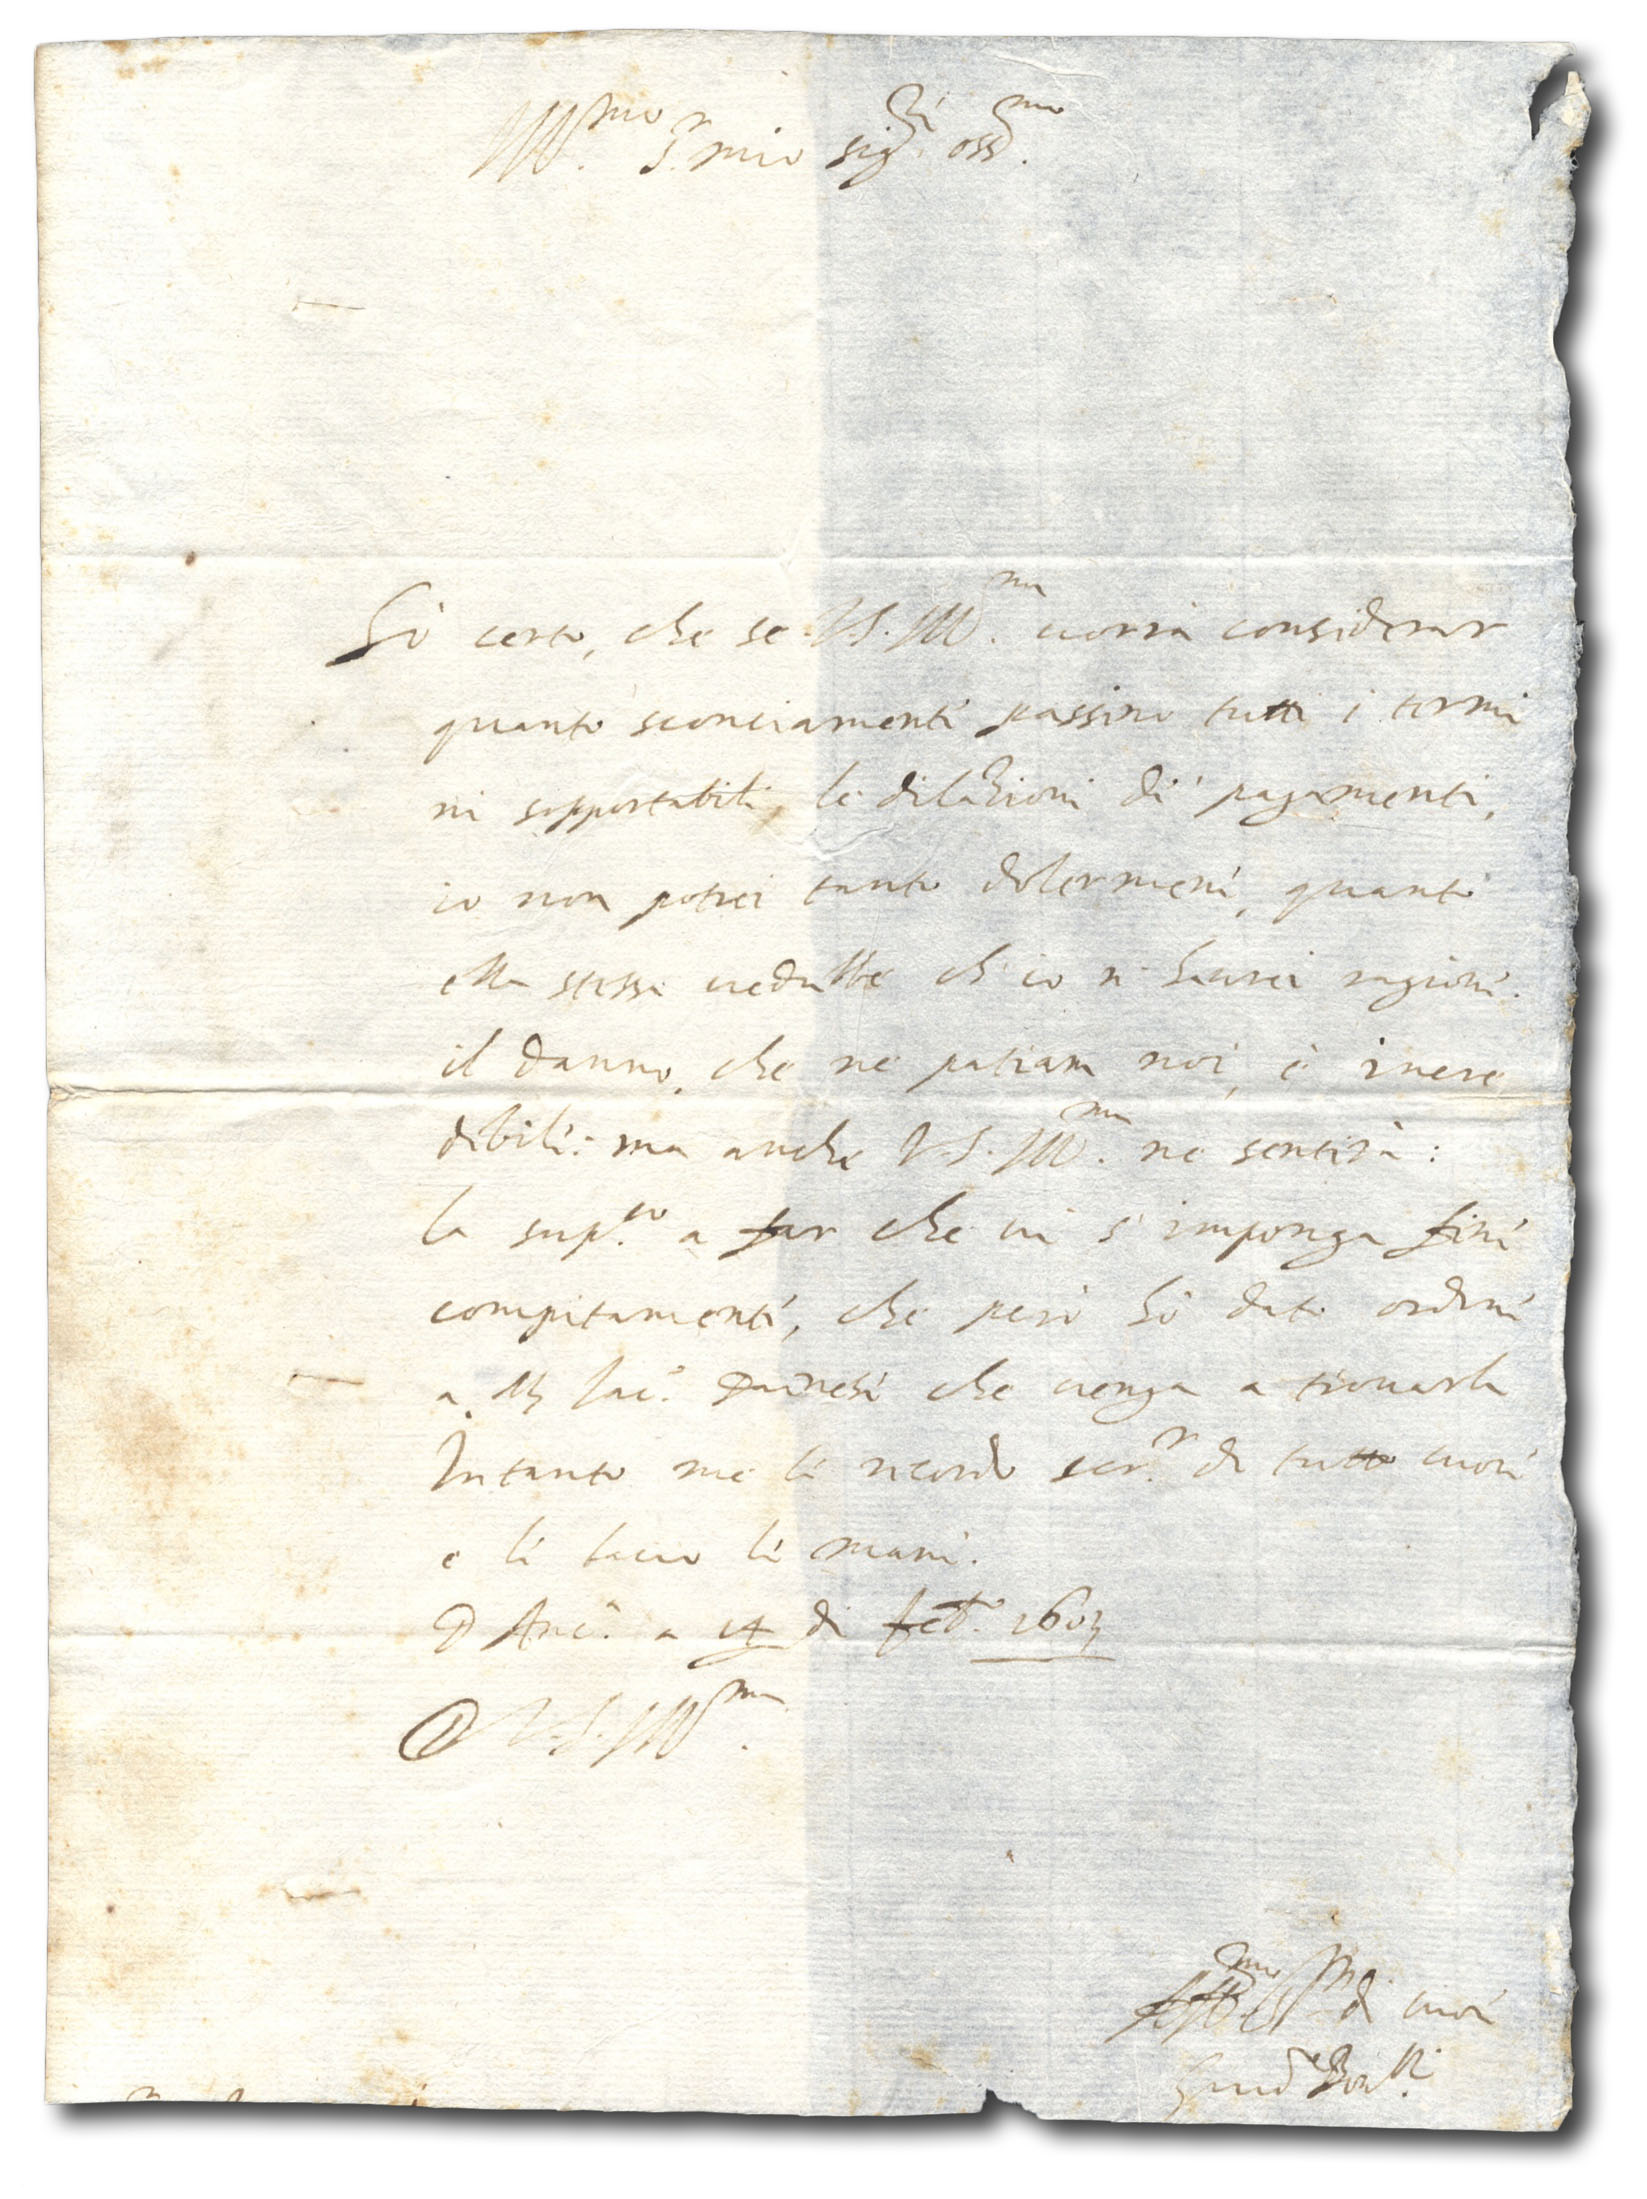 Ill.mo S.r mio sig.r oss.mo
Sò certo, che se V.S. Ill.ma vorrà considerar
quanto sconciamente passino tutti i termi
ni sopportabili le dilazioni di pagamenti,
io non potrei tanto dolermene, quanto
ella stessa vedrebbe ch'io n'haurei ragione.
il danno, che ne patiam noi, è incre
dibile: ma anche V.S. Ill.ma ne sentirà:
la sup.co a far che vi s'imponga fine
compitamente, che però hò dato ordine
a M. Iac.o che venga a trouarla
Intanto me le ricordo ser.r di tutto cuore
e le bacio le mani.
D'Anc.a a 14 di feb.o 1603
D V.S. Ill.ma
Aff.mo ser.r di cuore